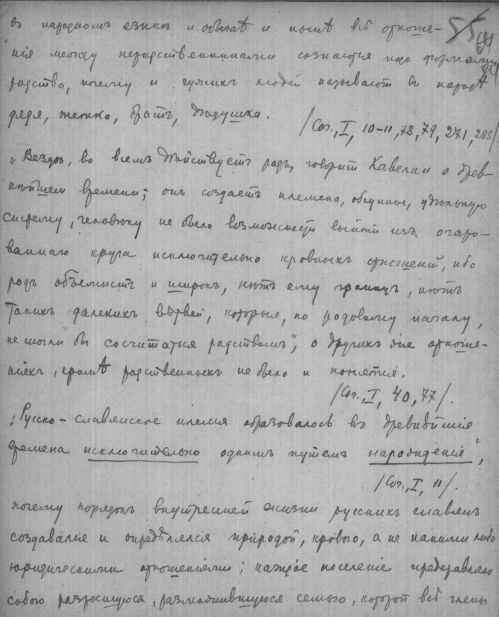 въ народномъ языкѣ и обычаѣ и послѣ всѣ отноше-
нія между неродственниками сознаются подъ формами
родства, почему и чужихъ людей называютъ въ народѣ
дядя, тетка, братъ, дѣдушка.
/Соч., I, 10-11, 78, 79, 271, 285/
„Вездѣ, во всемъ дѣйствуетъ родъ, говоритъ Кавелинъ о древ-
нѣйшемъ времени; онъ создаетъ племена, общины, удѣльную
систему, человѣку не было возможности выйти изъ очаро-
ваннаго круга исключительно кровныхъ отношеній, ибо
родъ объемистъ и широкъ, нѣтъ ему границъ, нѣтъ
такихъ далекихъ вѣтвей, которые, по родовому началу,
не могли бы сосчитаться родствомъ", о другихъ же отноше-
ніяхъ, кромѣ родственныхъ не было и понятія.
/Соч., I, 40, 77/.
„Русско-славянское племя образовалось въ древнѣйшія
времена исключительно однимъ путемъ нарожденія",
/Соч., I, 11/
почему порядокъ внутренней жизни русскихъ славянъ
создавался и опредѣлялся природой, кровью, а не какими либо
юридическими отношеніями; каждое поселеніе представляло
собою разросшуюся, размножившуюся семью, которой всѣ члены